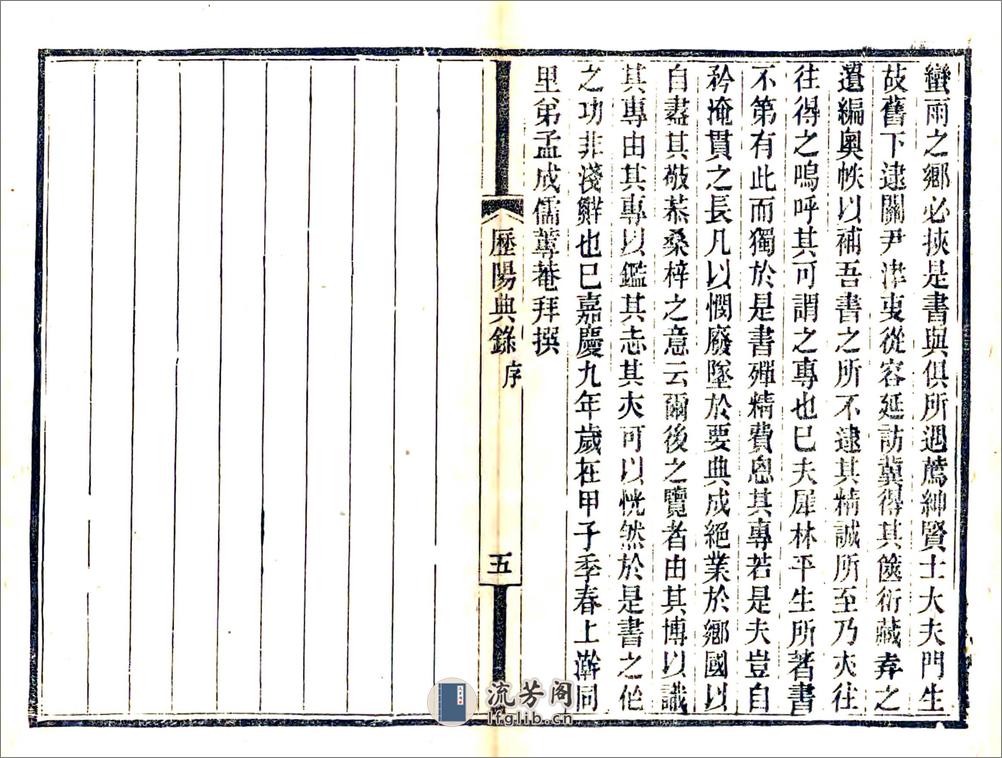 蠻雨之鄉必挾是書與俱所遇薦紳賢士大夫門生
故舊下逮關尹津吏從容延訪冀得其篋衍藏弆之
遺編奧帙以補吾書之所不逮其精誠所至乃亦往
往得之嗚呼其可謂之專也已夫犀林平生所著書
不第有此而獨於是書殫精費思其專若是夫豈自
矜淹貫之長凡以憫廢墜於要典成絕業於鄉國以
自盡其敬恭桑梓之意云爾後之覽者由其博以識
其專由其專以鑑其志其亦可以恍然於是書之作
之功非淺尠也已嘉慶九年歲在甲子季春上澣同
里弟孟成儒蕚菴拜撰
歷陽典錄 序
五
流芳阁
lfglib.cn